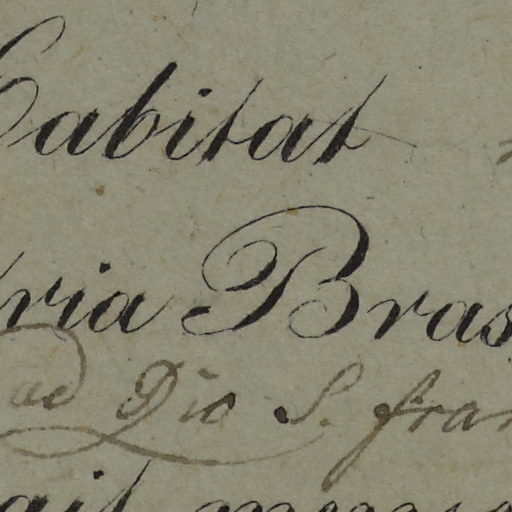 Habitat
ria Bras
ad Rio S. fran